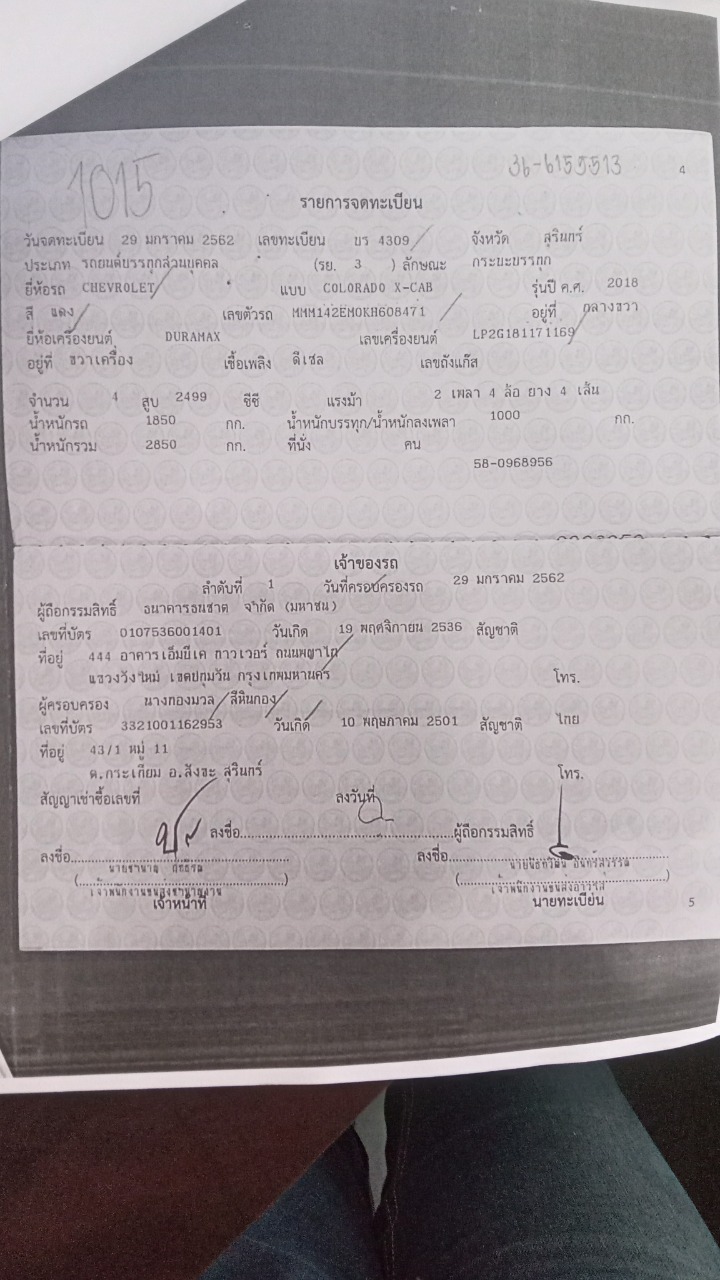 1015
36-6155513
4
รายการจดทะเบียน
วันจดทะเบียน 29 มกราคม 2562 เลขทะเบียน บร 4309 จังหวัด สุรินทร์
ประเภท รถยนต์บรรทุกส่วนบุคคล (รย. 3 ) ลักษณะ กระบะบรรทุก
ยี่ห้อรถ CHEVROLET แบบ COLORADO X-CAB รุ่นปี ค.ศ. 2018
สี แดง เลขตัวรถ MMM142EM0KH608471 อยู่ที่ กลางขวา
ยี่ห้อเครื่องยนต์ DURAMAX เลขเครื่องยนต์ LP2G181171169
อยู่ที่ ขวาเครื่อง เชื้อเพลิง ดีเซล เลขถังแก๊ส
จำนวน 4 สูบ 2499 ซีซี แรงม้า 2 เพลา 4 ล้อ ยาง 4 เส้น
น้ำหนักรถ 1850 กก. น้ำหนักบรรทุก/น้ำหนักลงเพลา 1000 กก.
น้ำหนักรวม 2850 กก. ที่นั่ง คน
58-0968956
เจ้าของรถ
ลำดับที่ 1 วันที่ครอบครองรถ 29 มกราคม 2562
ผู้ถือกรรมสิทธิ์ ธนาคารธนชาต จำกัด (มหาชน)
เลขที่บัตร 0107536001401 วันเกิด 19 พฤศจิกายน 2536 สัญชาติ
ที่อยู่ 444 อาคารเอ็มบีเค ทาวเวอร์ ถนนพญาไท
แขวงวังใหม่ เขตปทุมวัน กรุงเทพมหานคร โทร.
ผู้ครอบครอง นางทองมวล สีหินกอง
เลขที่บัตร 3321001162953 วันเกิด 10 พฤษภาคม 2501 สัญชาติ ไทย
ที่อยู่ 43/1 หมู่ 11
ต.กระเทียม อ.สังขะ สุรินทร์ โทร.
สัญญาเช่าซื้อเลขที่ ลงวันที่
ลงชื่อ ผู้ถือกรรมสิทธิ์
ลงชื่อ ลงชื่อ
เจ้าพนักงานขนส่งชำนาญงาน
เจ้าหน้าที่ นายทะเบียน
5